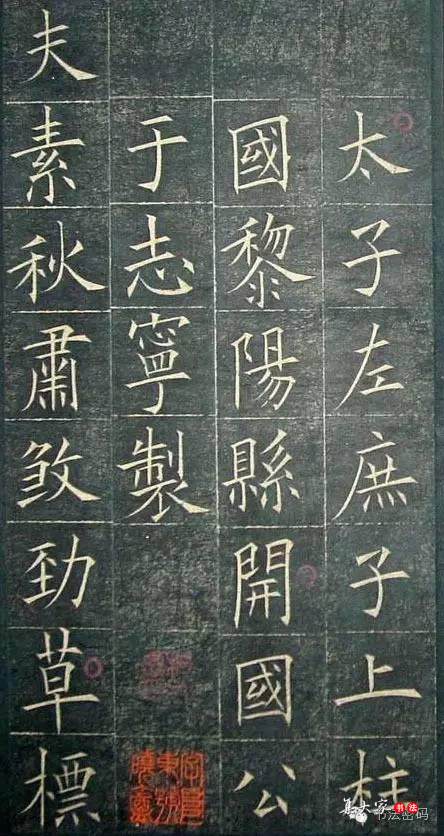 太子左庶子上柱
國黎陽縣開國公
于志寧製
夫素秋肅煞勁草標
集大家书法
书法密码